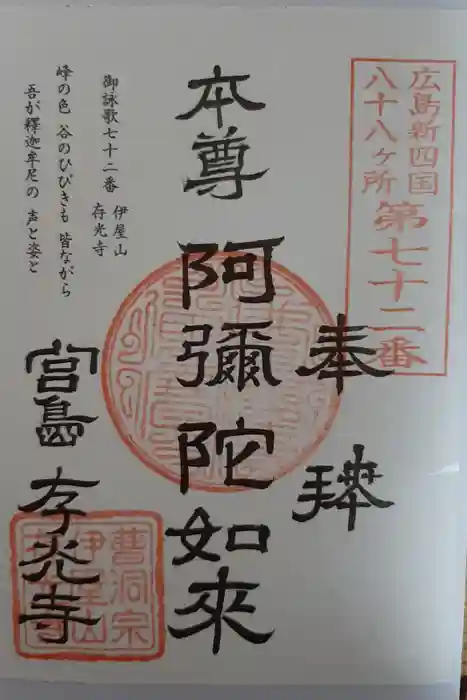 広島新四国
八十八ヶ所 第七十二番
奉拝
本尊 阿彌陀如来
御詠歌七十二番 伊屋山
存光寺
峰の色 谷のひびきも 皆ながら
吾が釋迦牟尼の 声と姿と
宮島 存光寺
曹洞宗
伊屋山